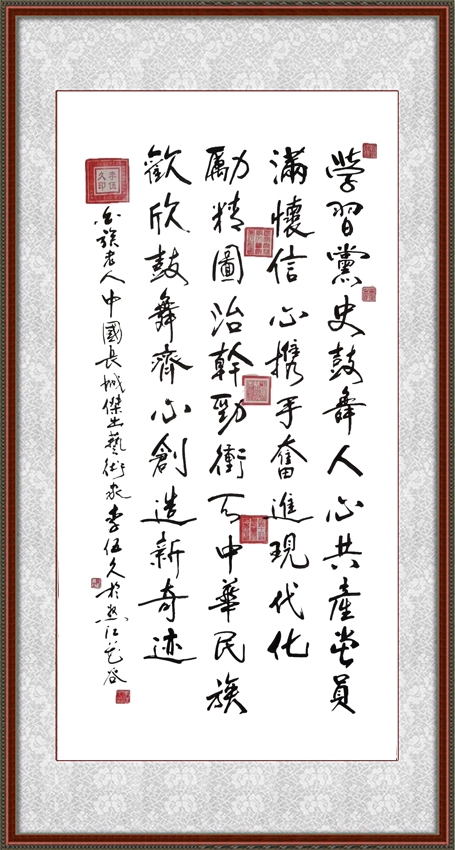 學習黨史鼓舞人心共產党員
滿懷信心携手奮進現代化
勵精圖治幹勁衝天中華民族
歡欣鼓舞齊心創造新奇迹
白族老人中國長城傑出藝術家李伍久於
李伍久印